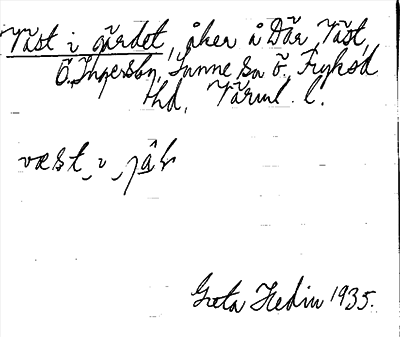 Väst i gärdet, åker å Där Väst
Ö. Ingersby, Sunne sn Ö. Fryksd
hd, Värml. l.
væst i jäɫ
Greta Hedin 1935.